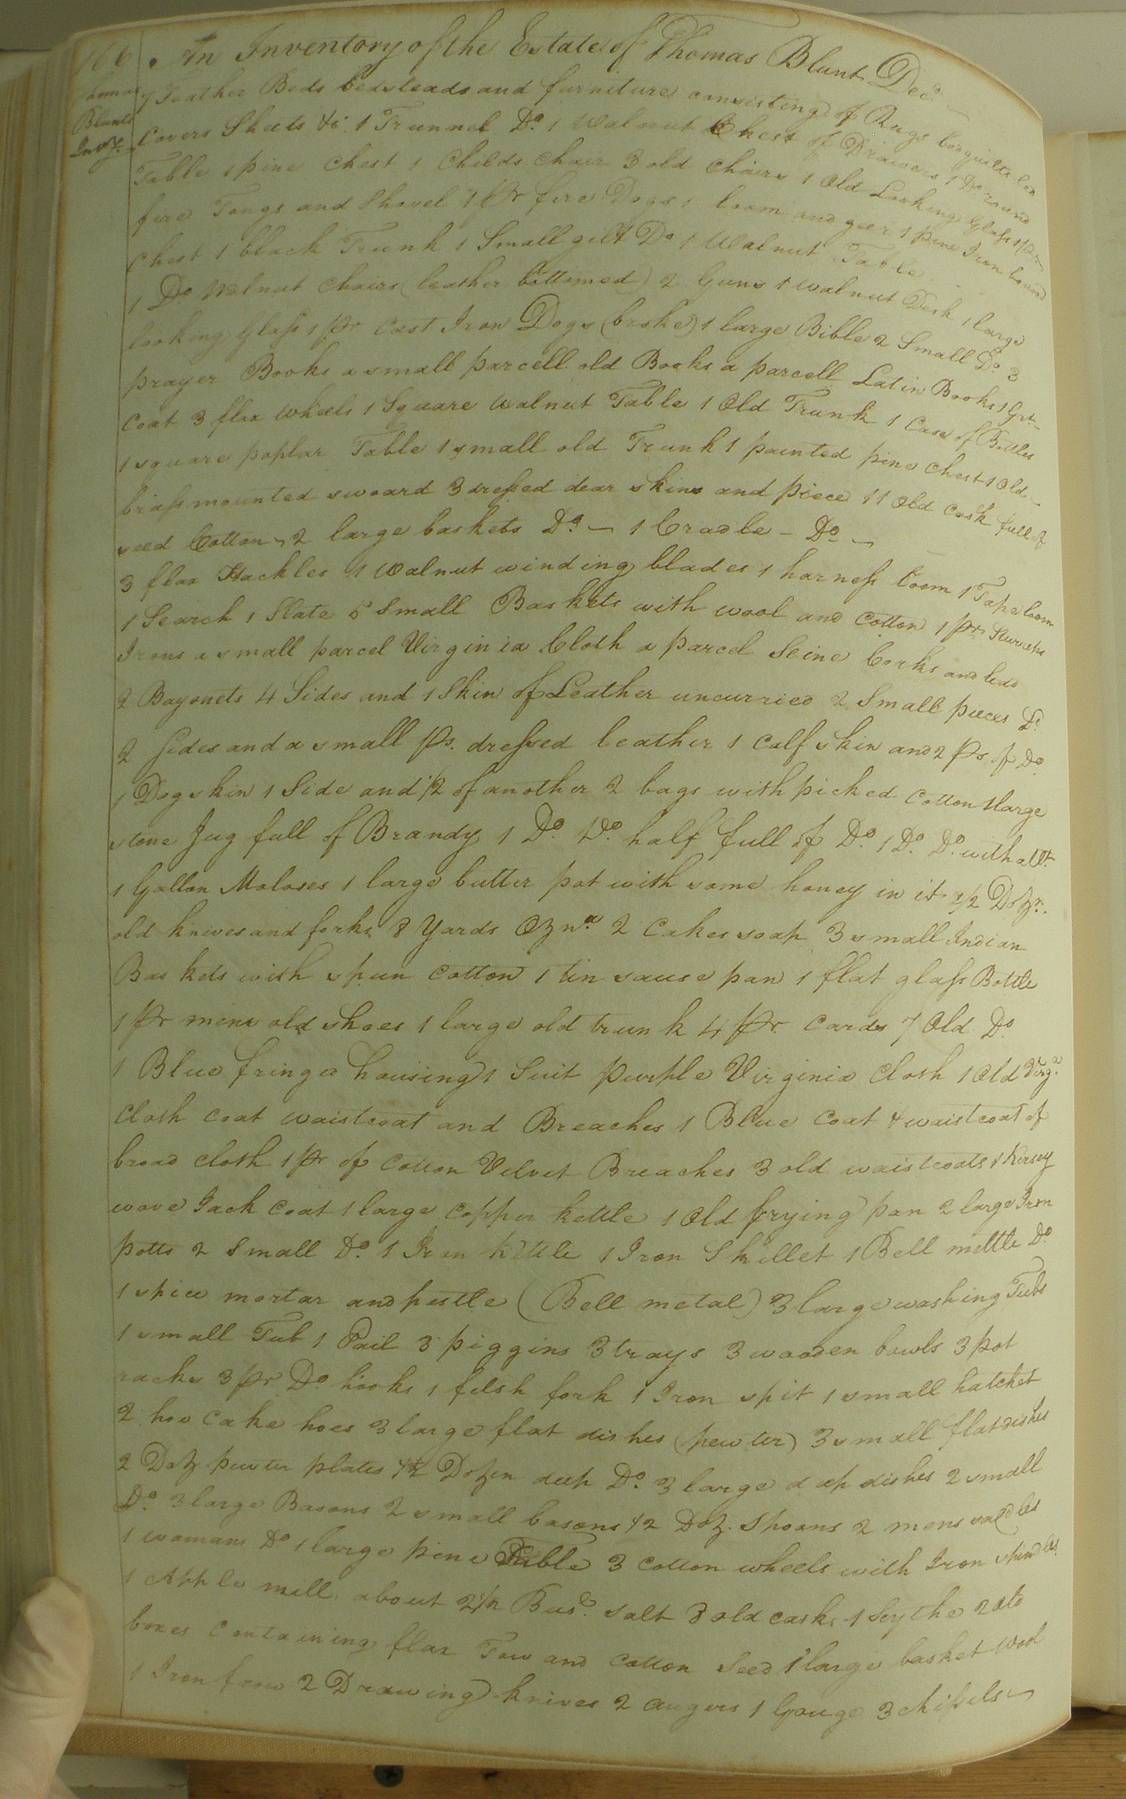 166 An Inventory of the Estate of Thomas Blunt Decd.
Thomas Blunts Invy.
7 Feather Beds bedsteads and furniture consisting of Rugs bedquilts
Covers Sheets &c. 1 Trunnel Do. 1 Walnut Chest of Drawers 1 Do round
Table 1 pine Chest 1 Childs Chair 3 old Chairs 1 Old Looking Glass 1 pr.
fire Tongs and Shovel 1 pr fire Dogs 1 loom and geer 1 pine Iron bound
Chest 1 black Trunk 1 Small gilt Do 1 Walnut Table
1 Do Walnut Chairs (leather bottomed) 2 Guns 1 walnut Desk 1 large
looking Glass 1 pr Cast Iron Dogs (broke) 1 large Bible 2 Small Do. 3
prayer Books a small parcell old Books a parcell Latin Books 1 Grt
Coat 3 flax wheels 1 Square walnut Table 1 Old Trunk 1 Case of Bottles
1 square poplar Table 1 small old Trunk 1 painted pine Chest 1 Old
brass mounted swoard 3 dressed dear skins and piece 1 Old Cask full of
seed Cotton 2 large baskets Do. 1 Cradle Do
3 flax Hackles 1 Walnut winding blades 1 harness loom 1 Tape loom
1 Search 1 Slate 5 Small Baskets with wool and Cotton 1 pr. Sturrups
Irons a small parcel Virginia Cloth a parcel Seine Corks and leads
2 Bayonets 4 Sides and 1 Skin of Leather uncurried 2 Small pieces Do.
2 Sides and a small ps. dressed leather 1 Calf skin and 2 ps. of Do
1 Dogskin 1 Side and 1/2 of another 2 bags with picked Cotton 1 large
stone Jug full of Brandy 1 Do. Do. half full of Do. 1 Do. Do. with abt.
1 Gallon Moloses 1 large butter pot with some honey in it 1/2 Dozn.
old knives and forks 8 Yards Ozna 2 Cakes soap 3 small Indian
Baskets with spun Cotton 1 tin sause pan 1 flat glass Bottle
1 pr mens old shoes 1 large old trunk 4 pr Cards 7 Old Do
1 Blue fringed housing 1 Suit purple Virginia Cloth 1 Old Virga.
Cloth Coat waistcoat and Breaches 1 Blue Coat & waistcoat of
broad cloth 1 pr of Cotton Velvet Breaches 3 old waistcoats 1 Kersey
wove Jack Coat 1 large Copper kettle 1 Old frying pan 2 large Iron
potts 2 Small Do. 1 Iron Kittle 1 Iron Skillet 1 Bell mettle Do
1 spice mortar and pestle (Bell metal) 3 large washing Tubs
1 small Tub 1 Pail 3 piggins 3 trays 3 wooden bowls 3 pot
racks 3 pr Do hooks 1 flesh fork 1 Iron spit 1 small hatchet
2 hoe Cake hoes 3 large flat dishes (pewter) 3 small flat dishes
2 Doz pewter plates 1/2 Dozen deep Do. 3 large deep dishes 2 small
Do. 3 large Basons 2 small basons 1/2 Doz. Spoons 2 mens saddles
1 womans Do 1 large pine Table 3 Cotton wheels with Iron spindles
1 Apple mill about 2 1/2 Busd. Salt 3 old casks 1 Scythe 2
boxes Containing flax Tow and Cotton Seed 1 large basket Wool
1 Iron frow 2 Drawing knives 2 augers 1 Gouge 3 chissels